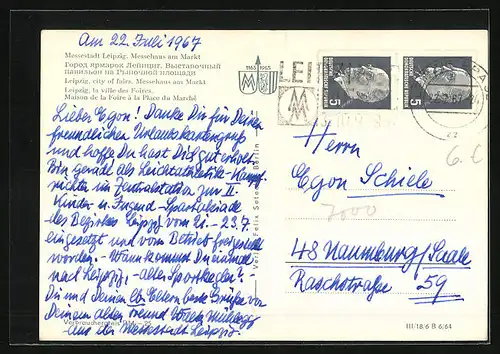 Am 22. Juli 1967
Messestadt Leipzig. Messehaus am Markt
Город ярмарок Лейпциг. Выставочный
павильон на Рыночной площади
Leipzig, city of fairs. Messehaus am Markt
Leipzig, la ville des Foires.
Maison de la Foire à la Place du Marché
Lieber Egon! Danke Dir für Deinen
freundlichen Urlaubskartengruß
und hoffe Du hast Dich gut erholt.
Bin gerade als Leichtathletik-Kampf-
richter im Zentralstadion zur II.
Kinder- u. Jugend-Spartakiade
des Bezirkes Leipzig vom 21.-23.7.
eingesetzt und vom Betrieb freigestellt
worden. - Wann kommst Du einmal
nach Leipzig, - alter Sportkegler?
Dir und Deinen lb. Eltern beste Grüße von
Deinem alten Freund
aus der Messestadt Leipzig.
Verlag Felix Setecki Berlin
1165 1965
MM
LEI
5
5
DEUTSCHE DEMOKRATISCHE REPUBLIK
Herrn
Egon Schiele
7000
6.€
48 Naumburg/Saale
Raschstraße 59
III/18/6 B 6/64